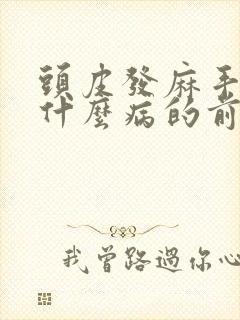 頭皮發麻手
什麼病的前
我曾路過你心